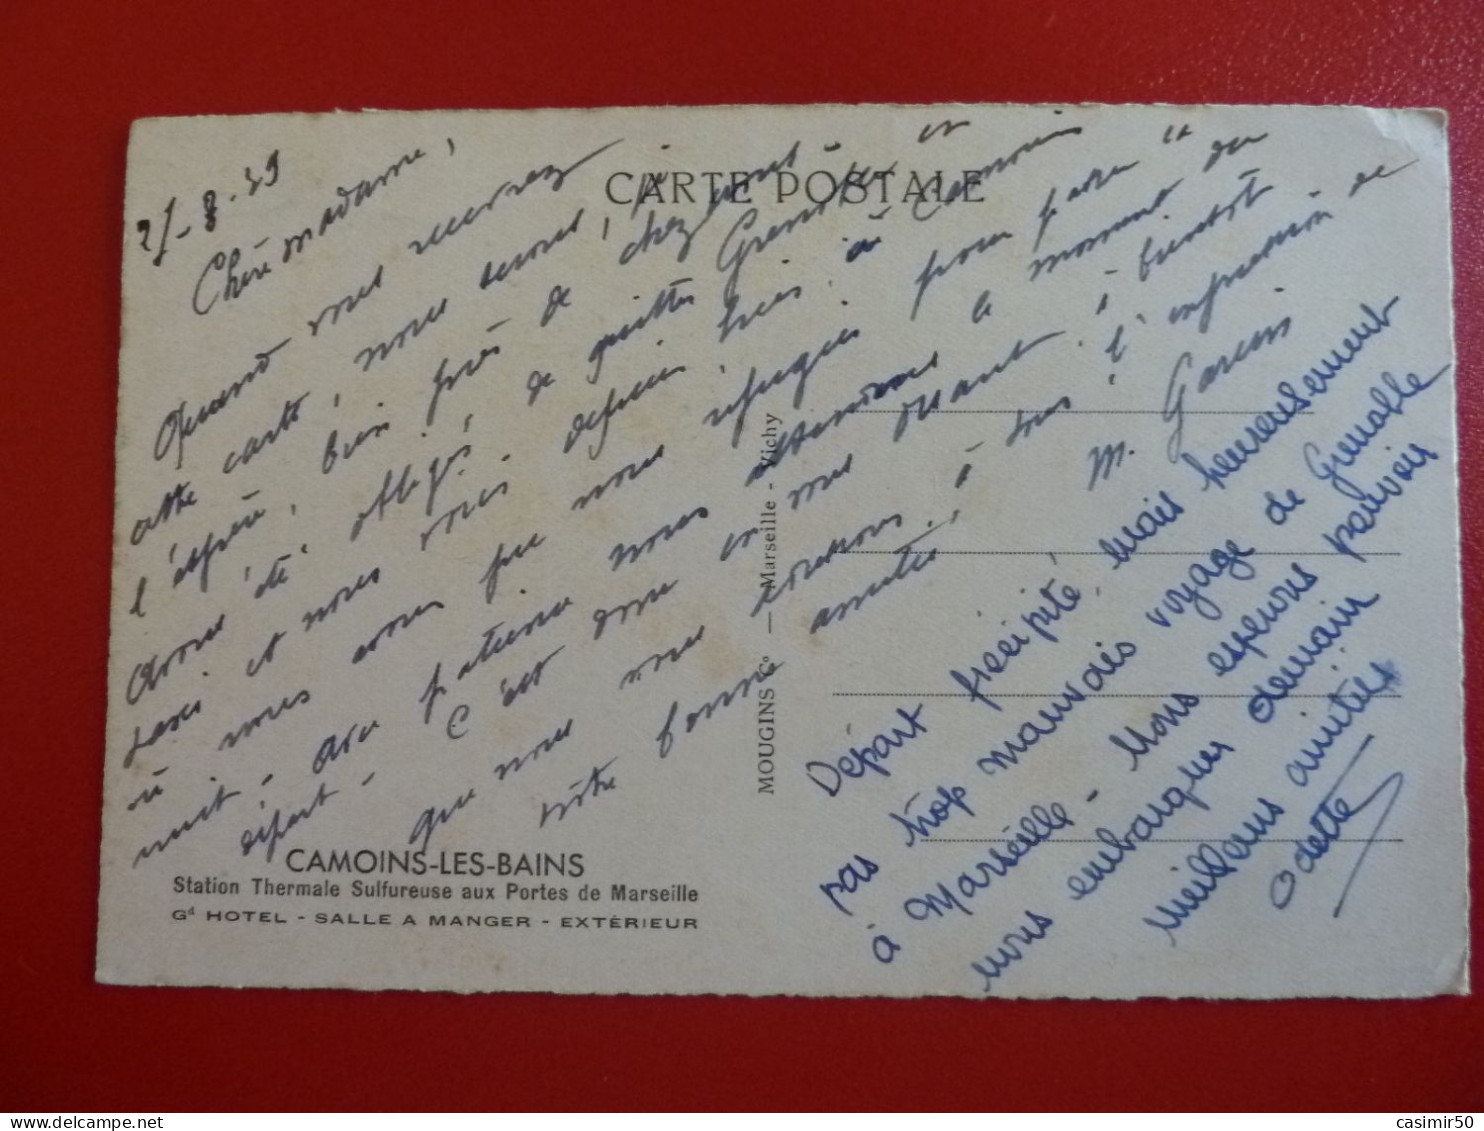 CARTE POSTALE
Chère madame,
Quand vous recevrez
cette carte, nous serons,
l'espère, bien près de chez
avons été obligés, de quitter Grenoble
et nous depuis hier à Camoins
où nous avons pu nous réfugier pour passer la
nuit. nous attendrons le moment du
départ -
C'est donc en vous disant à bientôt
que nous vous à tous, l'expression de
notre bonne amitié.
M. Garcin
Départ précipité, mais heureusement
pas trop mauvais voyage de Grenoble
à Marseille - Nous espérons pouvoir
nous embarquer demain
meilleures amitiés
Odette
MOUGINS Cº — Marseille - Vichy
CAMOINS-LES-BAINS
Station Thermale Sulfureuse aux Portes de Marseille
Gᵈ HOTEL - SALLE A MANGER - EXTÉRIEUR
delcampe.net
casimir50